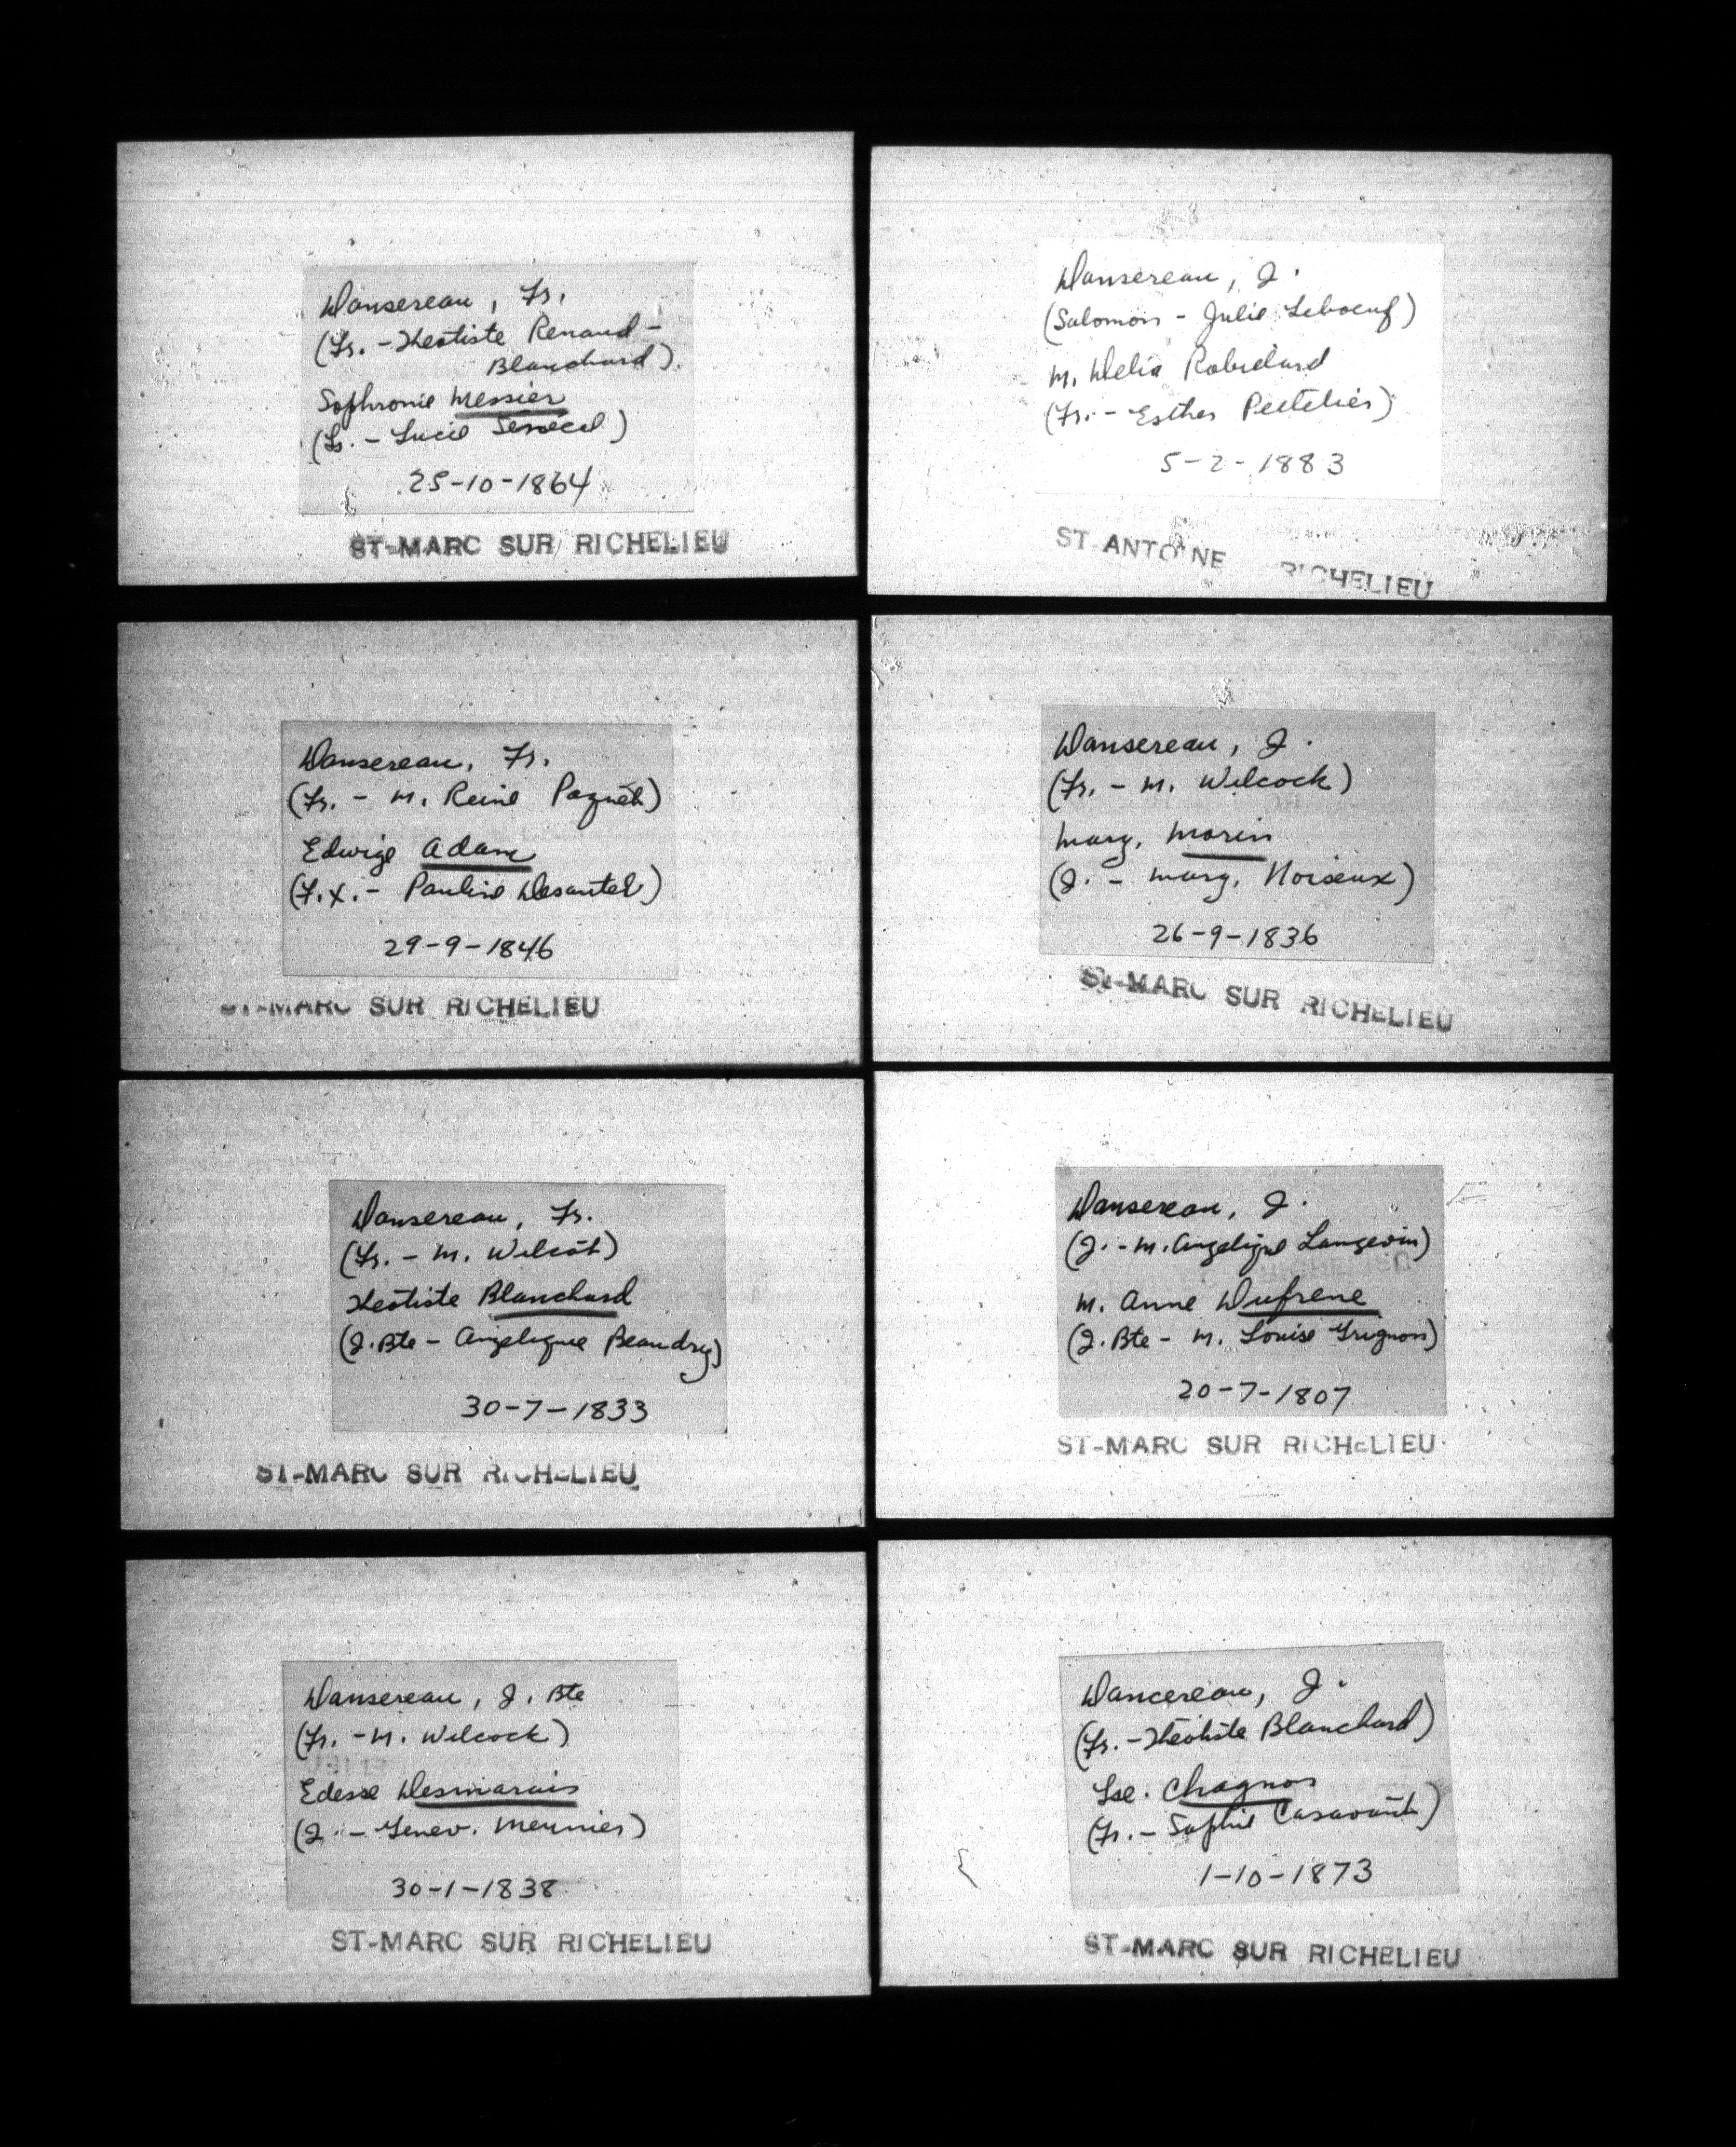 Dansereau, Fr.
(Fr. - Théotiste Renaud -
Blanchard).
Sophronie Messier
(Fr. - Lucie Senécal)
25-10-1864
ST-MARC SUR RICHELIEU
Dansereau, J.
(Salomon - Julie Leboeuf)
M. Delia Robidard
(Fr. - Esther Pelletier)
5-2-1883
ST ANTOINE RICHELIEU
Dansereau, Fr.
(Fr. - M. Reine Paquet)
Edwige Adam
(F.X. - Pauline Desautel)
29-9-1846
ST-MARC SUR RICHELIEU
Dansereau, J.
(Fr. - M. Wilcock)
Marg. Morin
(J. - Marg. Noiseux)
26-9-1836
ST-MARC SUR RICHELIEU
Dansereau, Fr.
(Fr. - M. Wilcot)
Théotiste Blanchard
(J. Bte - Angelique Beaudry)
30-7-1833
ST-MARC SUR RICHELIEU
Dansereau, J.
(J. - M. Angelique Langevin)
M. Anne Dufrene
(J. Bte - M. Louise Grignon)
20-7-1807
ST-MARC SUR RICHELIEU
Dansereau, J. Bte
(Fr. - M. Wilcock)
Edesse Desmarais
(J. - Genev. Meunier)
30-1-1838
ST-MARC SUR RICHELIEU
Dancereau, J.
(Fr. - Théotiste Blanchard)
Lse. Chagnon
(Fr. - Sophie Casavant)
1-10-1873
ST-MARC SUR RICHELIEU